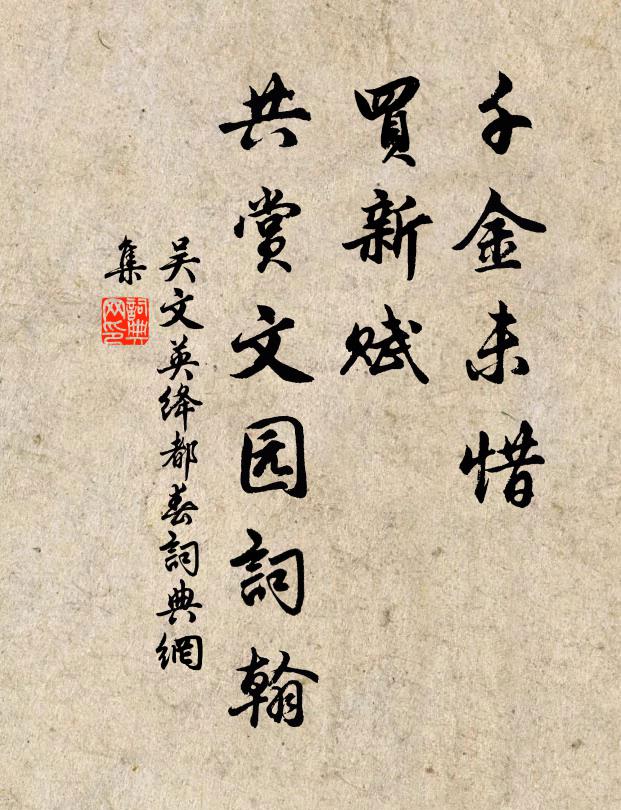 千金未惜
買新賦
共賞文园詞翰
吴文英绛都春詞典網
集
詞典
网印